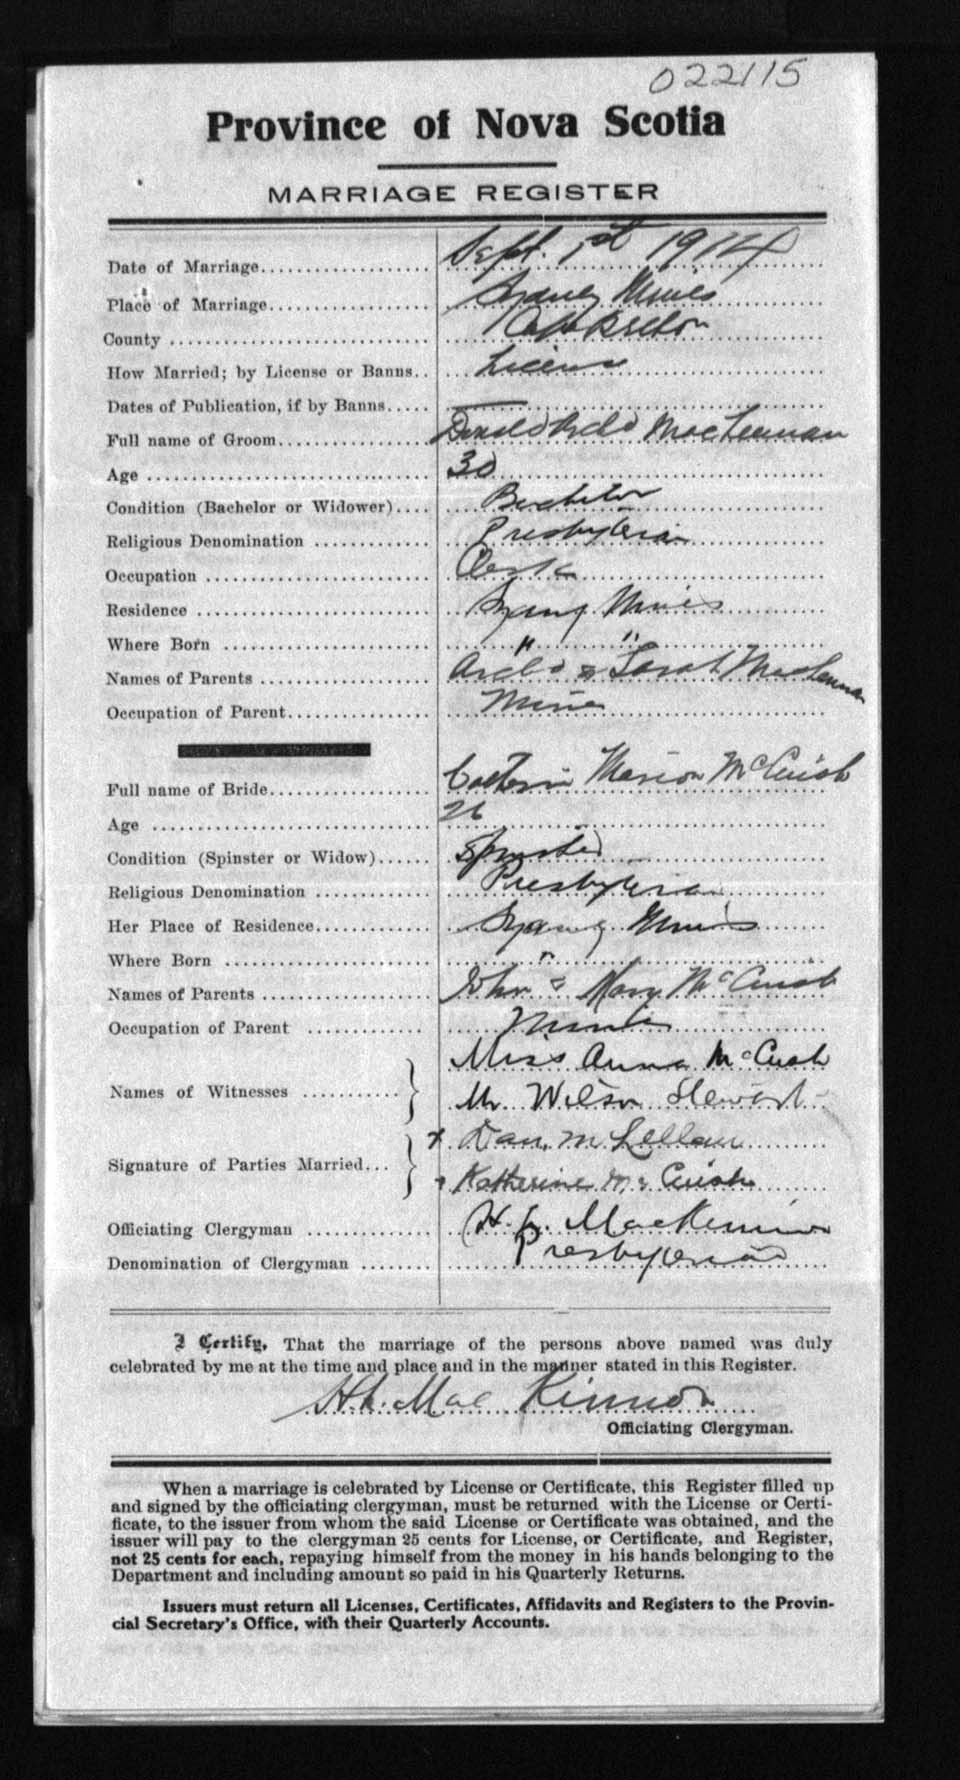 022115
Province of Nova Scotia
MARRIAGE REGISTER
Date of Marriage Sept. 1st 1914
Place of Marriage Sydney Mines
County Cape Breton
How Married; by License or Banns License
Dates of Publication, if by Banns —
Full name of Groom Donald Archd MacLennan
Age 30
Condition (Bachelor or Widower) Bachelor
Religious Denomination Presbyterian
Occupation Clerk
Residence Sydney Mines
Where Born " "
Names of Parents Archd & Sarah MacLennan
Occupation of Parent Miner
Full name of Bride Marion McCuish
Age 26
Condition (Spinster or Widow) Spinster
Religious Denomination Presbyterian
Her Place of Residence Sydney Mines
Where Born "
Names of Parents John & Mary McCuish
Occupation of Parent
Names of Witnesses Miss Anna McCuish
Mr. Wilson Stewart
Signature of Parties Married x Dan. McLellan
x Katherine Mc Cuish
Officiating Clergyman MacKinnon
Denomination of Clergyman Presbyterian
I Certify, That the marriage of the persons above named was duly
celebrated by me at the time and place and in the manner stated in this Register.
Mac Kinnon
Officiating Clergyman.
When a marriage is celebrated by License or Certificate, this Register filled up
and signed by the officiating clergyman, must be returned with the License or Certi-
ficate, to the issuer from whom the said License or Certificate was obtained, and the
issuer will pay to the clergyman 25 cents for License, or Certificate, and Register,
not 25 cents for each, repaying himself from the money in his hands belonging to the
Department and including amount so paid in his Quarterly Returns.
Issuers must return all Licenses, Certificates, Affidavits and Registers to the Provin-
cial Secretary's Office, with their Quarterly Accounts.